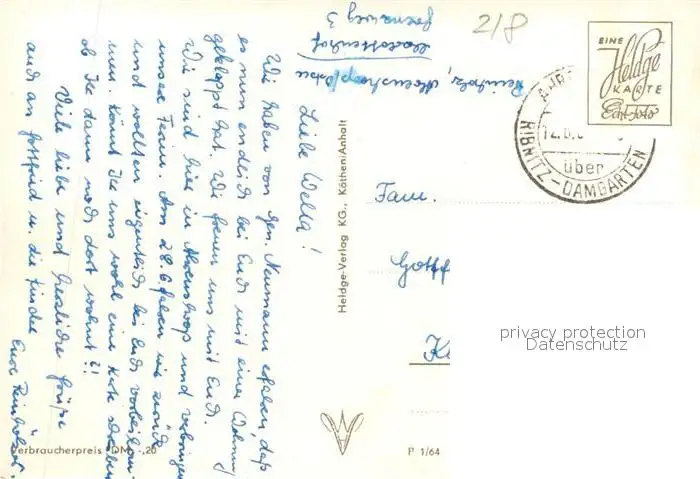 2/8
EINE
Heldge
KARTE
Echt Foto
über
RIBNITZ-DAMGARTEN
Grenzweg 3
Liebe Wella!
Wir haben von Gen. Neumann erfahren, daß
es nun endlich bei Euch mit einer Wohnung
geklappt hat. Wir freuen uns mit Euch.
Wir sind hier in Ahrenshoop und verbringen
unsere Ferien. Am 28.6. fahren wir zurück
und wollten eigentlich bei Euch vorbeikom-
men. Könnt Ihr uns wohl eine Karte schreiben
ob Ihr dann noch dort wohnt?!
Viele liebe und herzliche Grüße
auch an Gottfried u. die Kinder
Eure
Heldge-Verlag KG., Köthen/Anhalt
Fam.
Gottf
privacy protection
Datenschutz
Verbraucherpreis DM -,20
P 1/64